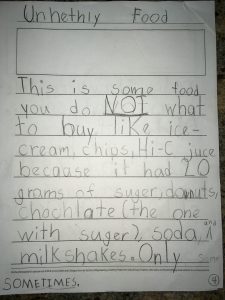 Unhethly Food
This is some food
you do NOT what
to buy like ice-
cream, chips, Hi-C juce
because it had 20
grams of suger, donuts,
chochlate (the one
with suger), soda, and
milkshakes. Only some
SOMETIMES.